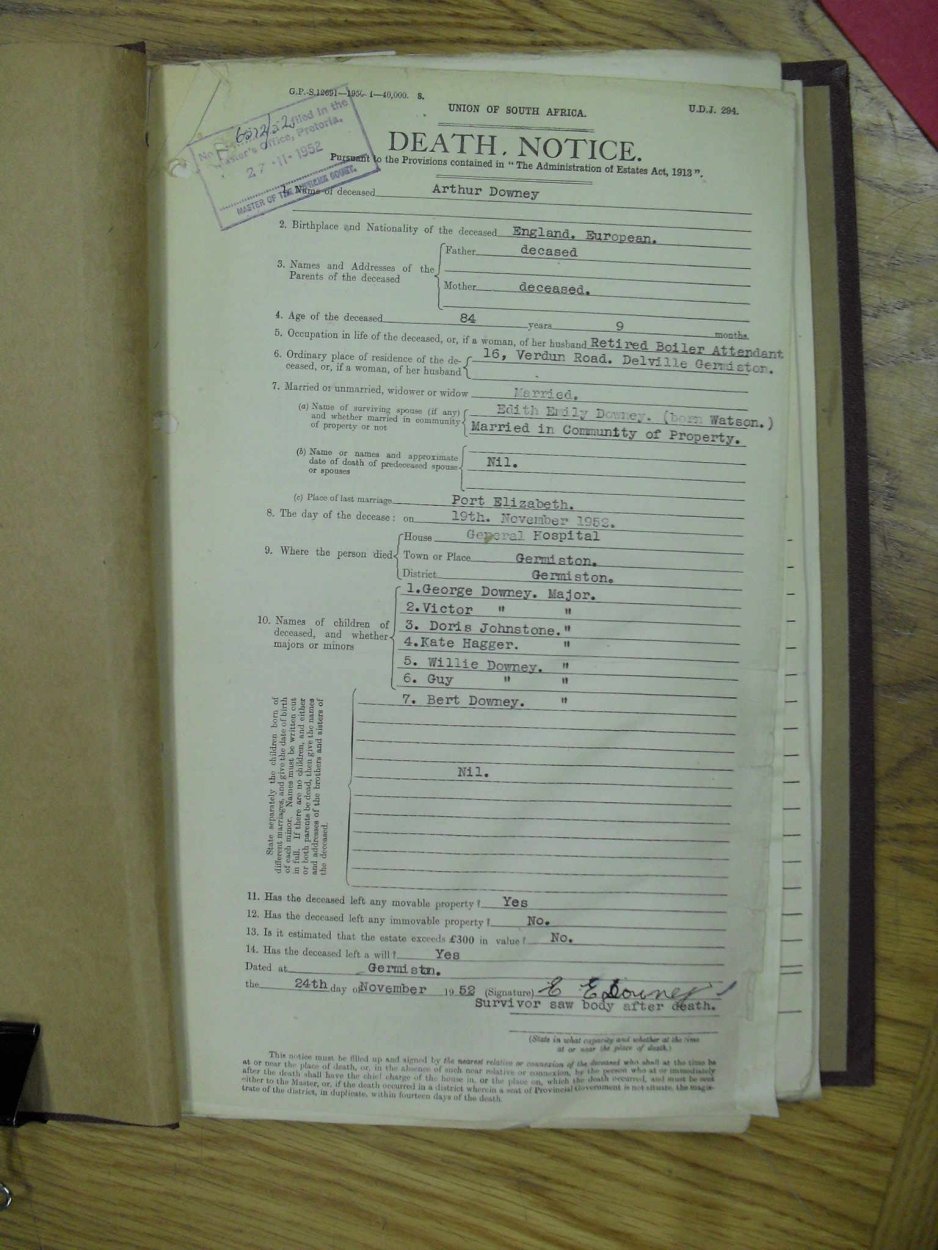 G.P.-S.12691—1950-1—40,000. S.
UNION OF SOUTH AFRICA.
U.D.J. 294.
DEATH. NOTICE.
Pursuant to the Provisions contained in "The Administration of Estates Act, 1913".
No. filed in the
Master's Office, Pretoria.
27-11-1952
MASTER OF THE SUPREME COURT.
1. Name of deceased Arthur Downey
2. Birthplace and Nationality of the deceased England. European.
3. Names and Addresses of the Parents of the deceased
Father decased
Mother deceased.
4. Age of the deceased 84 years 9 months.
5. Occupation in life of the deceased, or, if a woman, of her husband Retired Boiler Attendant
6. Ordinary place of residence of the de-
ceased, or, if a woman, of her husband
16, Verdun Road. Delville Germiston.
7. Married or unmarried, widower or widow Married.
(a) Name of surviving spouse (if any)
and whether married in community
of property or not
Edith Emily Downey. (born Watson.)
Married in Community of Property.
(b) Name or names and approximate
date of death of predeceased spouse
or spouses
Nil.
(c) Place of last marriage Port Elizabeth.
8. The day of the decease: on 19th. November 1952.
9. Where the person died
House General Hospital
Town or Place Germiston.
District Germiston.
10. Names of children of
deceased, and whether
majors or minors
1.George Downey. Major.
2.Victor " "
3. Doris Johnstone."
4.Kate Hagger. "
5. Willie Downey. "
6. Guy " "
7. Bert Downey. "
State separately the children born of
different marriages, and give the date of birth
of each minor. Names must be written out
in full. If there are no children, and either
or both parents be dead, then give the names
and addresses of the brothers and sisters of
the deceased.
Nil.
11. Has the deceased left any movable property? Yes
12. Has the deceased left any immovable property? No.
13. Is it estimated that the estate exceeds £300 in value? No.
14. Has the deceased left a will? Yes
Dated at Germistn.
the 24th day of November 1952 (Signature) E E Downey
Survivor saw body after death.
(State in what capacity and whether at the time
at or near the place of death.)
This notice must be filled up and signed by the nearest relative or connexion of the deceased who shall at the time be
at or near the place of death, or, in the absence of such near relative or connexion, by the person who at or immediately
after the death shall have the chief charge of the house in, or the place on, which the death occurred, and must be sent
either to the Master, or, if the death occurred in a district wherein a seat of Provincial Government is not situate, the magis-
trate of the district, in duplicate, within fourteen days of the death.